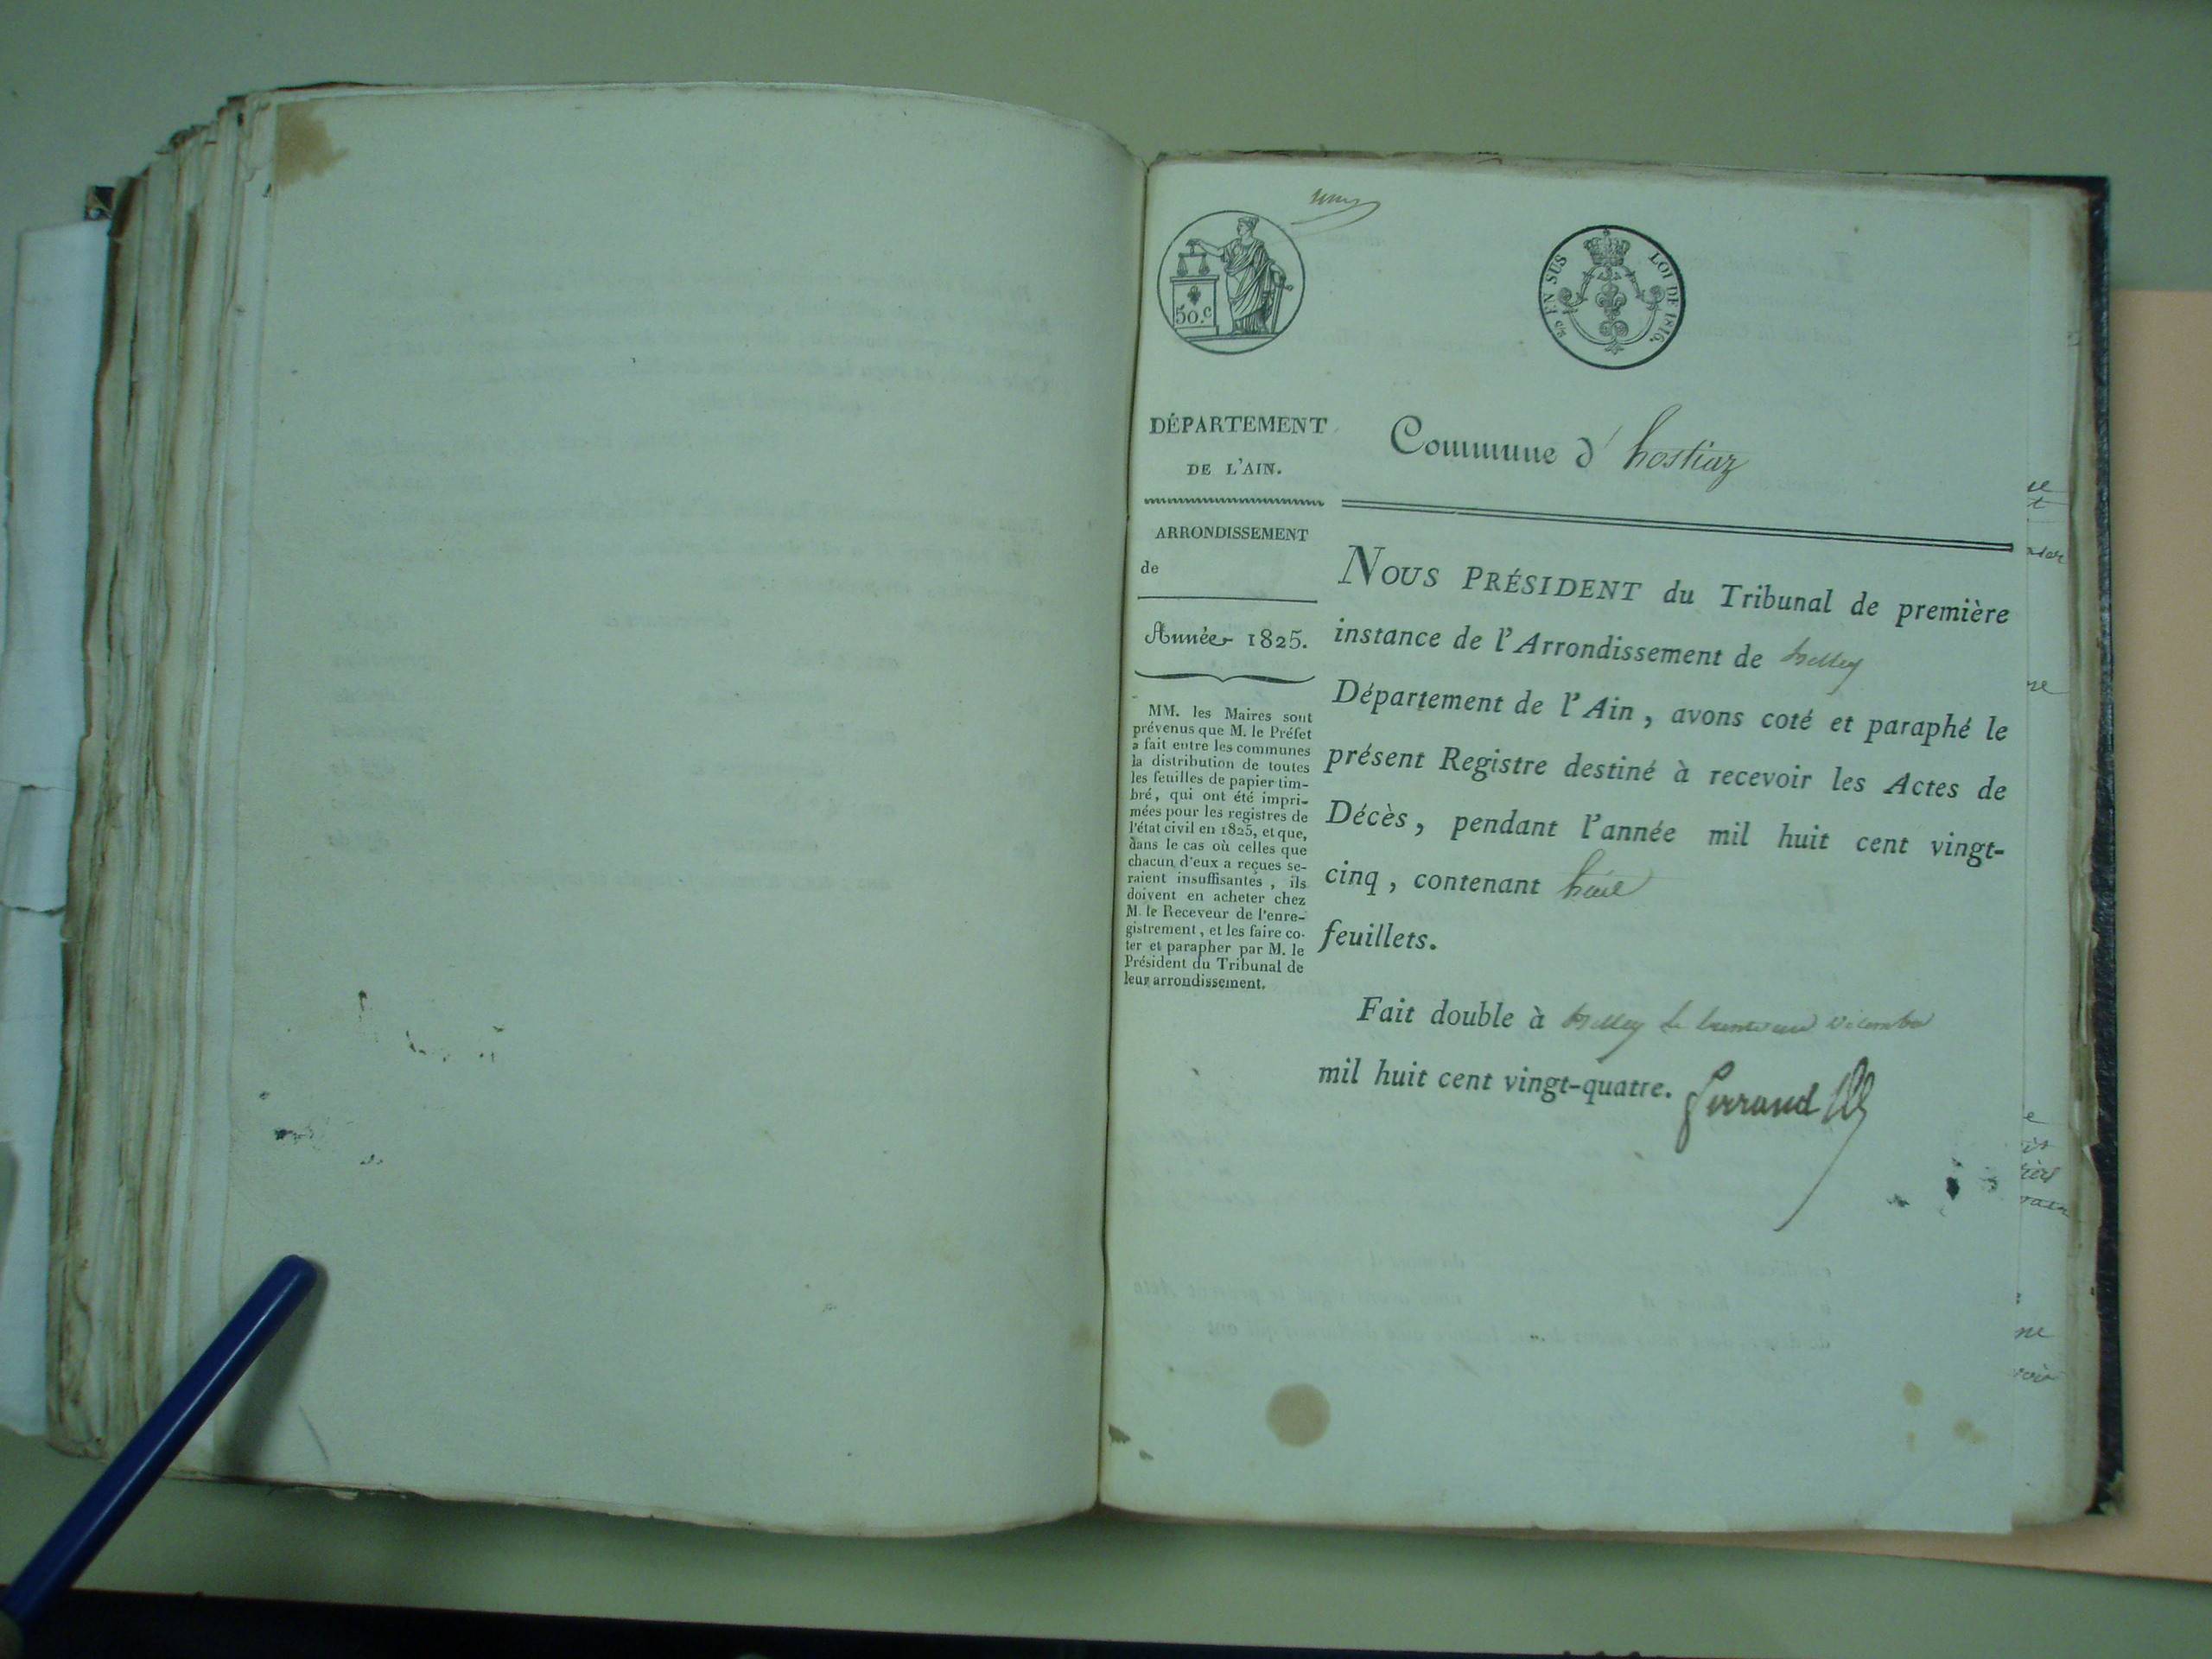 50.c
EN SUS
LOI DE 1816.
DÉPARTEMENT
DE L'AIN.
Commune d' hostiaz
ARRONDISSEMENT
de
Année 1825.
MM. les Maires sont
prévenus que M. le Préfet
a fait entre les communes
la distribution de toutes
les feuilles de papier tim-
bré, qui ont été impri-
mées pour les registres de
l'état civil en 1825, et que,
dans le cas où celles que
chacun d'eux a reçues se-
raient insuffisantes, ils
doivent en acheter chez
M. le Receveur de l'enre-
gistrement, et les faire co-
ter et parapher par M. le
Président du Tribunal de
leur arrondissement.
NOUS PRÉSIDENT du Tribunal de première
instance de l'Arrondissement de belley
Département de l'Ain, avons coté et paraphé le
présent Registre destiné à recevoir les Actes de
Décès, pendant l'année mil huit cent vingt-
cinq, contenant huit
feuillets.
Fait double à belley le trente un décembre
mil huit cent vingt-quatre.